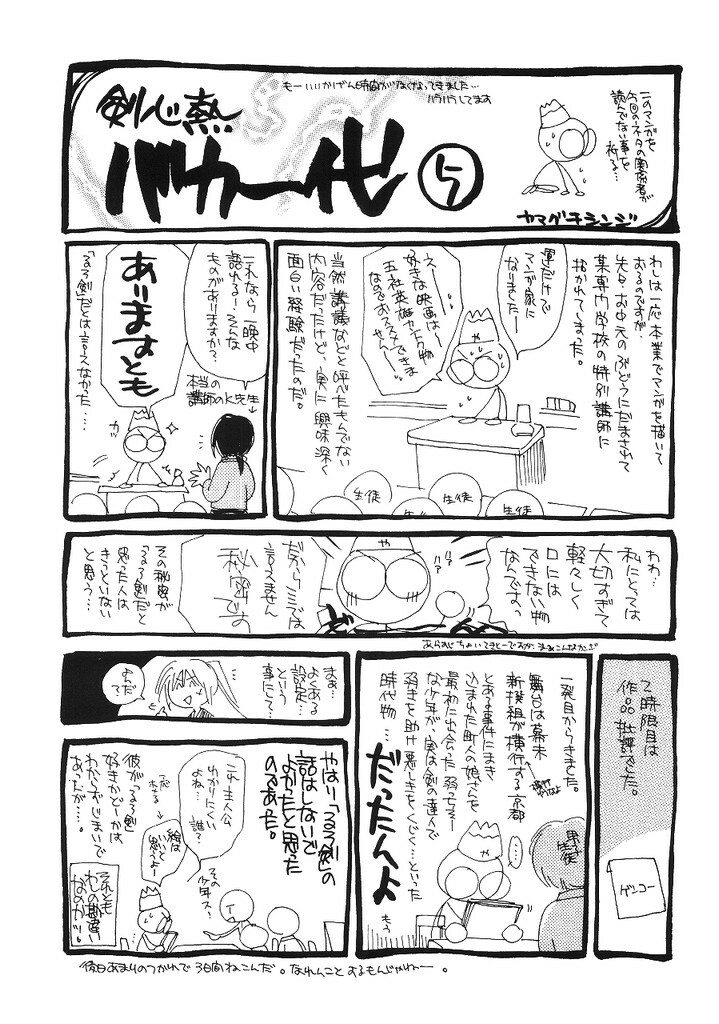 もーいいかげん時間がなくなってきました…
バラバラしてます
剣心熱
バカ一代
5
このマンガを
今回のネタの関係者が
読んでない事を
祈る…
ヤマグチシンジ
わしは一応本業でマンガを描いて
おるのですが、
先日、お中元のぶどうにだまされて
某専門学校の特別講師に
招かれてしまった。
運だけで
マンガ家に
なりましたー
えー
好きな映画はー
五社英雄カントク物
なのでおススメできま
せんー
や
当然講議などと呼べたもんでない
内容だったけど、実に興味深く
面白い経験だったのだ。
生徒
生徒
生徒
これなら一晩中
語れる!そんな
ものがありますか?
本当の
講師のK先生
ありますとも
ガバ
「るろ剣」だとは言えなかった…
わわ…
私にとっては
大切すぎて
軽々しく
口には
できない物
なんです。
や
ハァ
ハァ
だからここでは
言えません
秘密です
その秘密が
「るろ剣」だと
思った人は
きっといない
と思う…
あらすじちょいてきとーですが、まあこんなカンジ
2時限目は
作品批評でした。
ゲンコー
一発目からきました。
舞台は幕末
新撰組が横行する京都
とある事件にまき
込まれた町人の娘さんを
最初に出会った弱っちそー
な少年が、実は剣の達人で
弱きを助け悪しきをくじく…といった
時代物…
だったんよ
もう
男子
生徒
……
や
まあ…
よくある
設定…
という
事にして…
よんだ
?
やはり「るろ剣」の
話はしないで
よかったと思った
のであった。
これ主人公
わかりにくい
よね…
誰?
その
少年ス?
絵は
いいと
思うよー
彼が「るろ剣」
好きかどーかは
わからずじまいで
あったが…。
それとも
わしの勘違い
なのかッ。
後日あまりのつかれで3日間ねこんだ。なれんことするもんじゃねー。